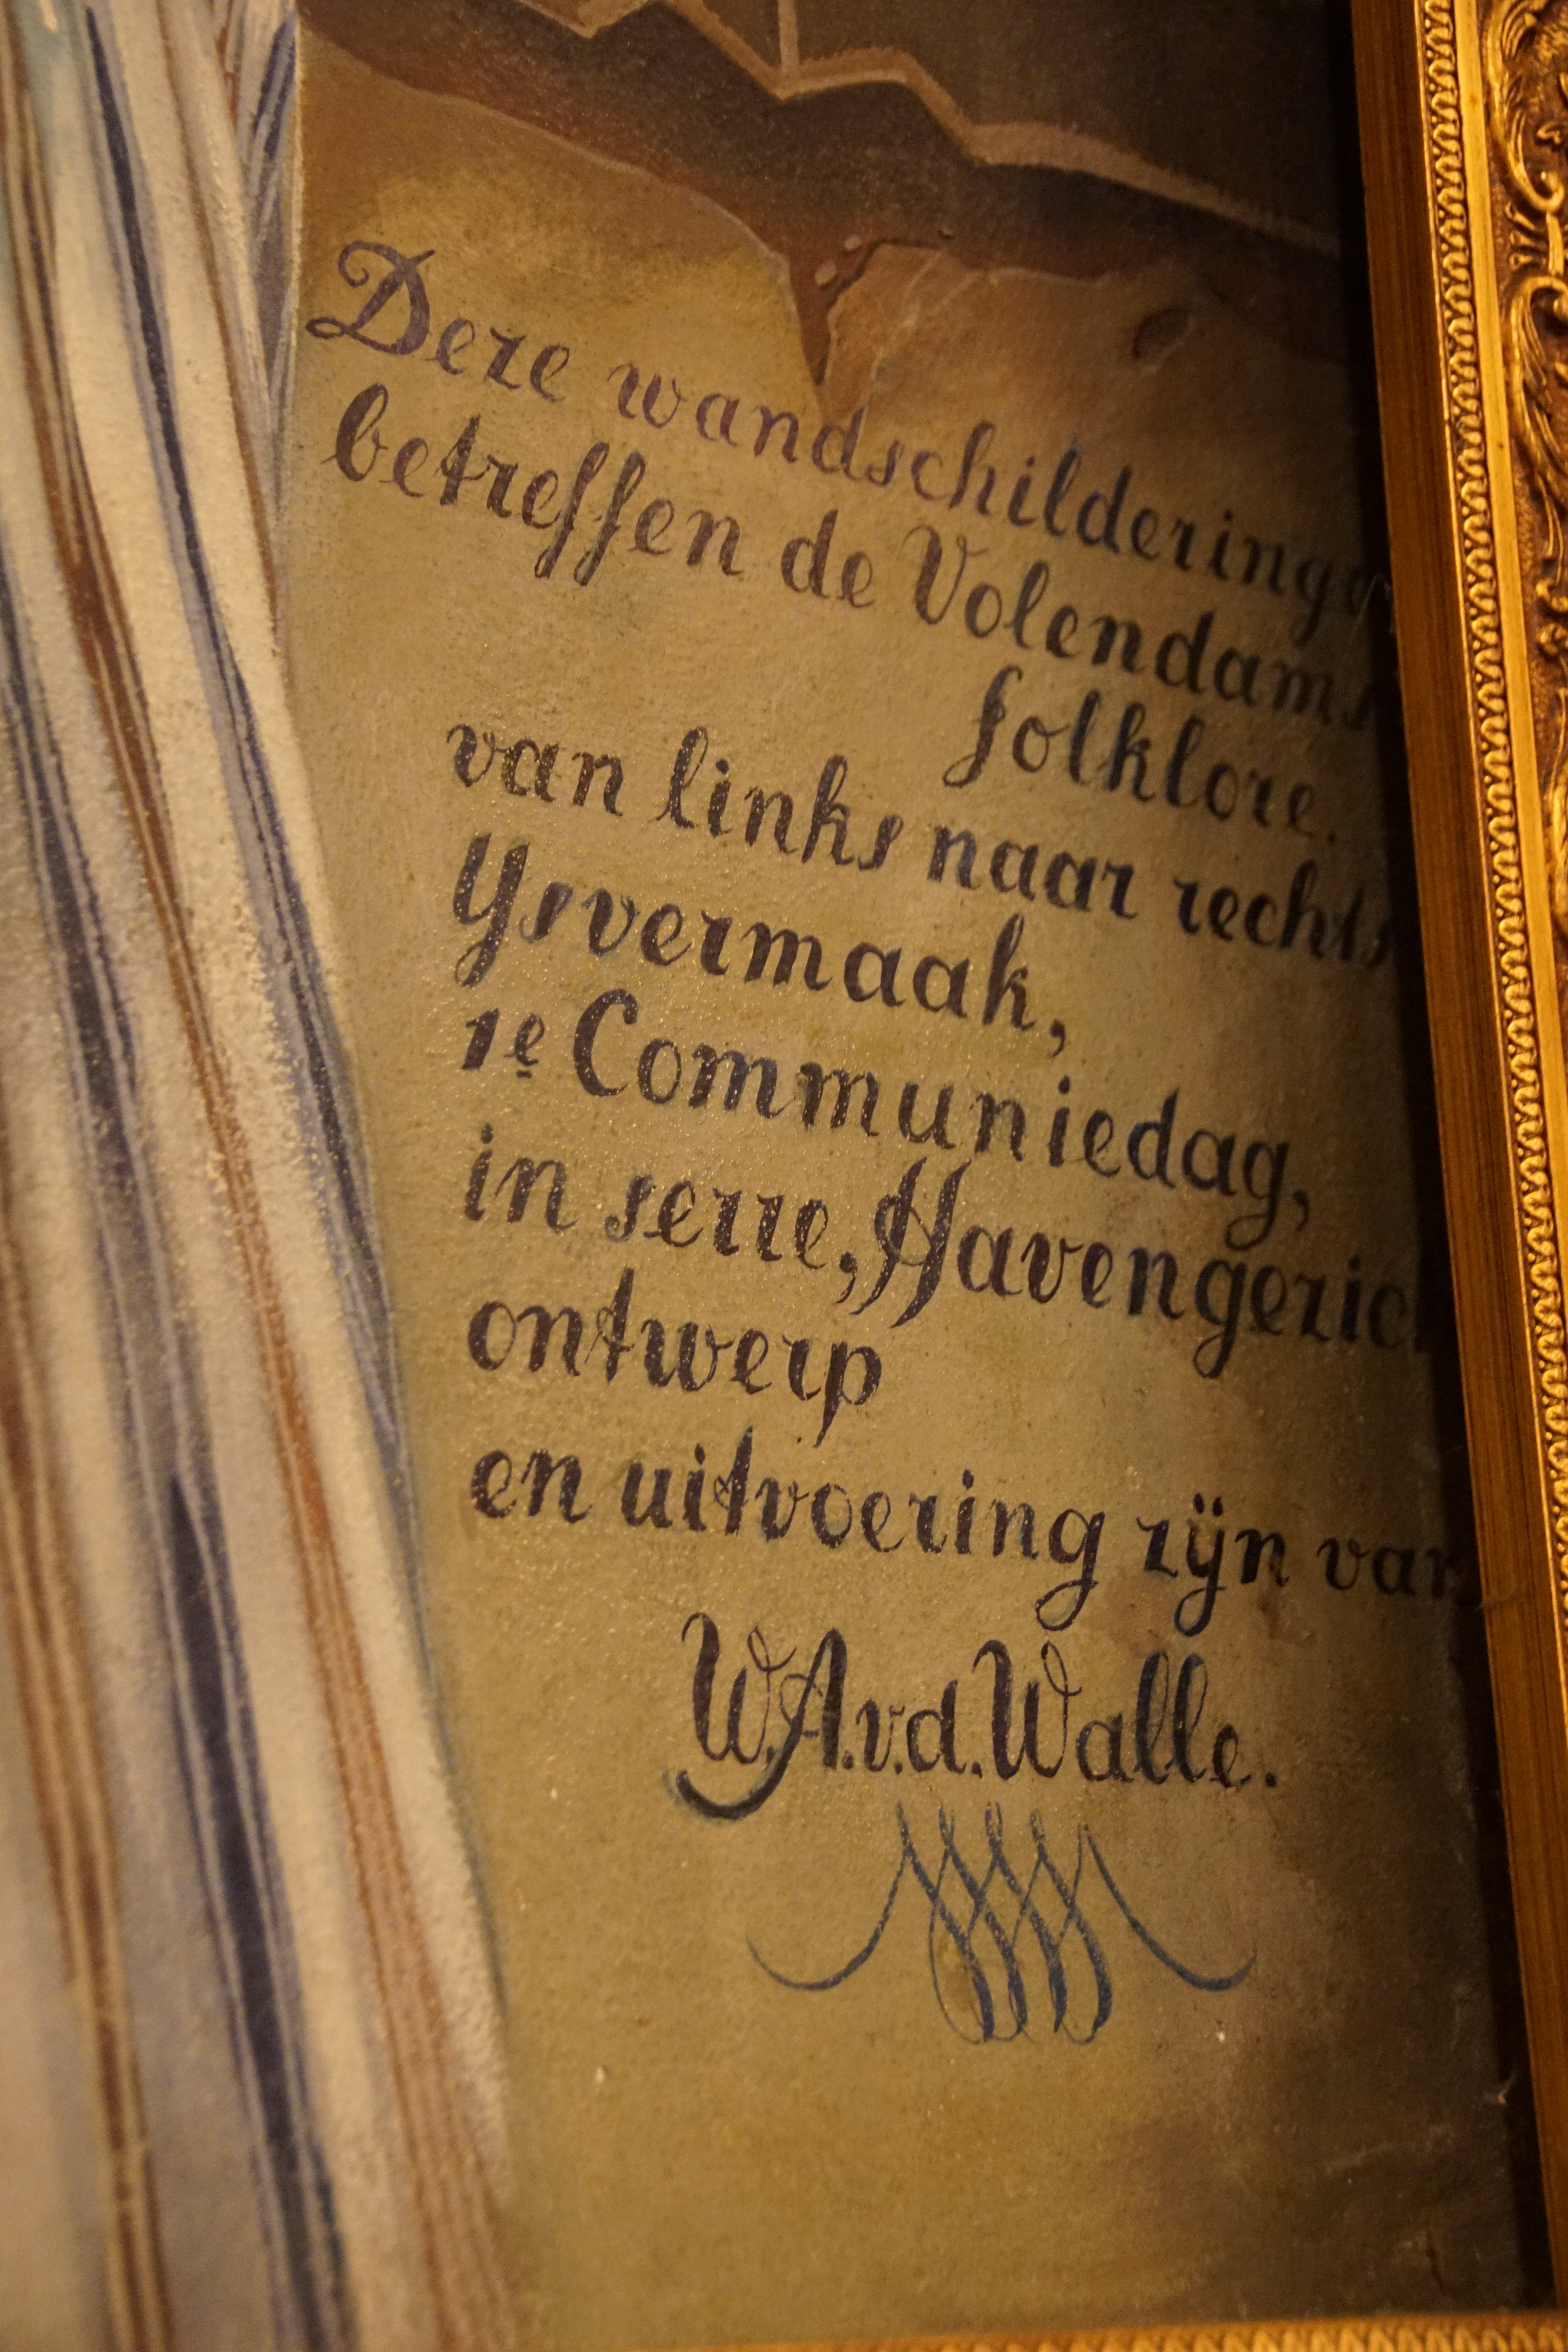 Deze wandschilderinge
betreffen de Volendams
folklore.
van links naar rechts
Ysvermaak,
1e Communiedag,
in serre, Havengezic
ontwerp
en uitvoering zijn van
W.A.v.d.Walle.